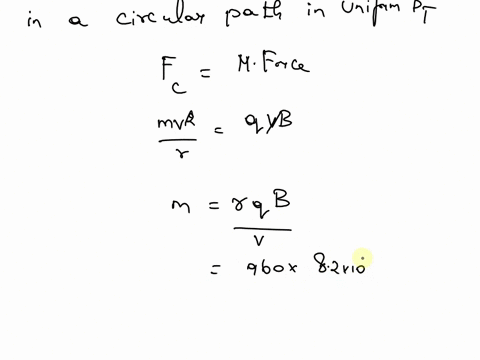 in a circular path in uniform
F_C = M.Force
mv²/r = qvB
m = rqB/v
= 960 x 8.2x10